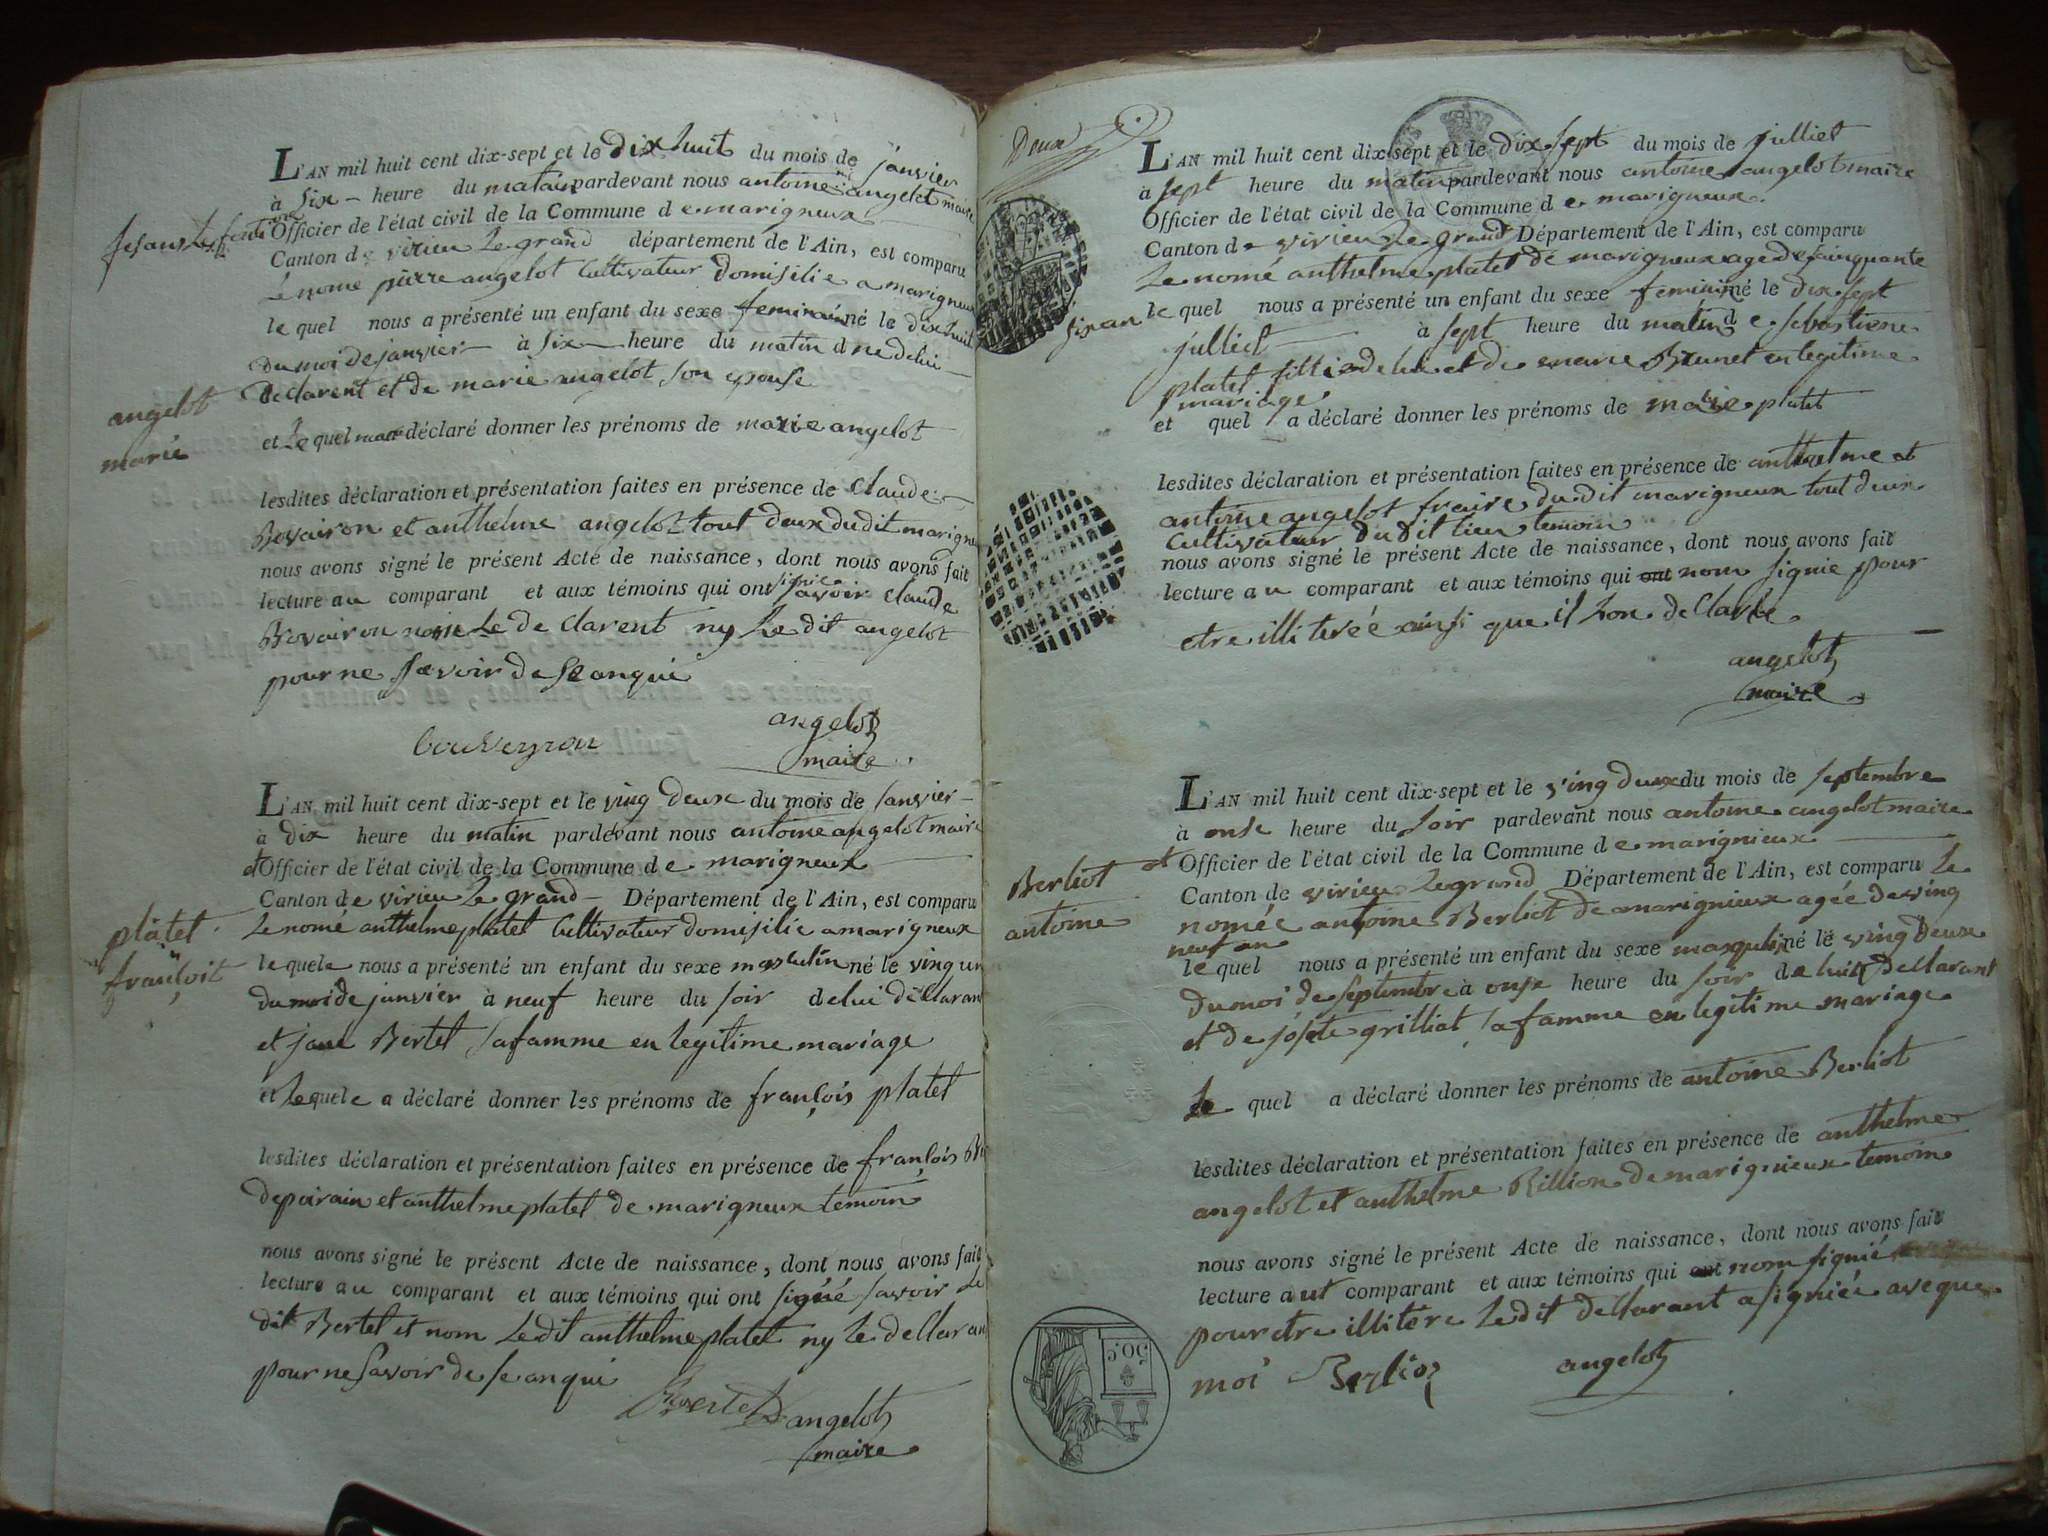 L'AN mil huit cent dix-sept et le dix huit du mois de janvier
à six heure du matin pardevant nous antoine angelot maire
Officier de l'état civil de la Commune de marigneux
Canton de virieu Le grand département de l'Ain, est comparu
Le nome pierre angelot Cultivateur domisilie a marigneux
le quel nous a présenté un enfant du sexe feminin né le dix huit
du moi de janvier à six heure du matin de lui
declarent et de marie angelot son epouse
angelot
marie
et Le quel a déclaré donner les prénoms de marie angelot
lesdites déclaration et présentation faites en présence de Claude
Bovairon et anthelme angelot tout deux dudit marigneux
nous avons signé le présent Acte de naissance, dont nous avons fait
lecture au comparant et aux témoins qui ont signie savoir claude
Bovairon non Le de Clarent ny Le dit angelot
pour ne savoir de se anqui
bouveyron
angelot
maire
L'AN mil huit cent dix-sept et le ving deux du mois de janvier
à dix heure du matin pardevant nous antoine angelot maire
et Officier de l'état civil de la Commune de marigneux
Canton de virieu Le grand Département de l'Ain, est comparu
Le nomé anthelme platet Cultivateur domisilie a marigneux
platet
françoit
le quele nous a présenté un enfant du sexe masculin né le ving un
du moi de janvier à neuf heure du soir de lui déclaran
et jane Bertet sa famme en legitime mariage
et Le quele a déclaré donner les prénoms de françois platet
lesdites déclaration et présentation faites en présence de françois
de poirain et anthelme platet de marigneux temoin
nous avons signé le présent Acte de naissance, dont nous avons fait
lecture au comparant et aux témoins qui ont signé savoir Le
dit Bertet et nom Le dit anthelme platet ny Le dellaran
pour ne savoir de se anqui
angelot
maire
Deux
L'AN mil huit cent dix-sept et le dix sept du mois de julliet
à sept heure du matin pardevant nous antoine angelot maire
Officier de l'état civil de la Commune de marigneux
Canton de virieu Le grand Département de l'Ain, est comparu
Le nomé anthelme platet de marigneux age de sainquante
six an
le quel nous a présenté un enfant du sexe feminin né le dix sept
julliet à sept heure du matin de sebastiene
platet fillie de lui et de marie Brunet en legitime
mariage
et quel a déclaré donner les prénoms de marie platet
lesdites déclaration et présentation faites en présence de anthelme et
antoine angelot fraire du dit marigneux tout deux
Cultivateur du dit lieu temoin
nous avons signé le présent Acte de naissance, dont nous avons fait
lecture au comparant et aux témoins qui ont nom signie pour
etre illiterée ainsi que il hon declarée
angelot
maire
L'AN mil huit cent dix-sept et le ving deux du mois de septembre
à onse heure du soir pardevant nous antoine angelot maire
et Officier de l'état civil de la Commune de marignieux
Berliot
antoine
Canton de virieu Le grand Département de l'Ain, est comparu Le
nomée antoine Berliot de marignieux agée de ving
neuf an
le quel nous a présenté un enfant du sexe masqulin né le ving deux
du moi de septembre à onse heure du soir de luit dellarant
et de josete grilliat sa famme en legitime mariage
Le quel a déclaré donner les prénoms de antoine Berliot
lesdites déclaration et présentation faites en présence de anthelme
angelot et anthelme Billion de marignieux temoin
nous avons signé le présent Acte de naissance, dont nous avons fait
lecture aut comparant et aux témoins qui ont nom signié
pour etre illitére Le dit dellarant a signiée aveque
moi Berlioz angelot
50 c